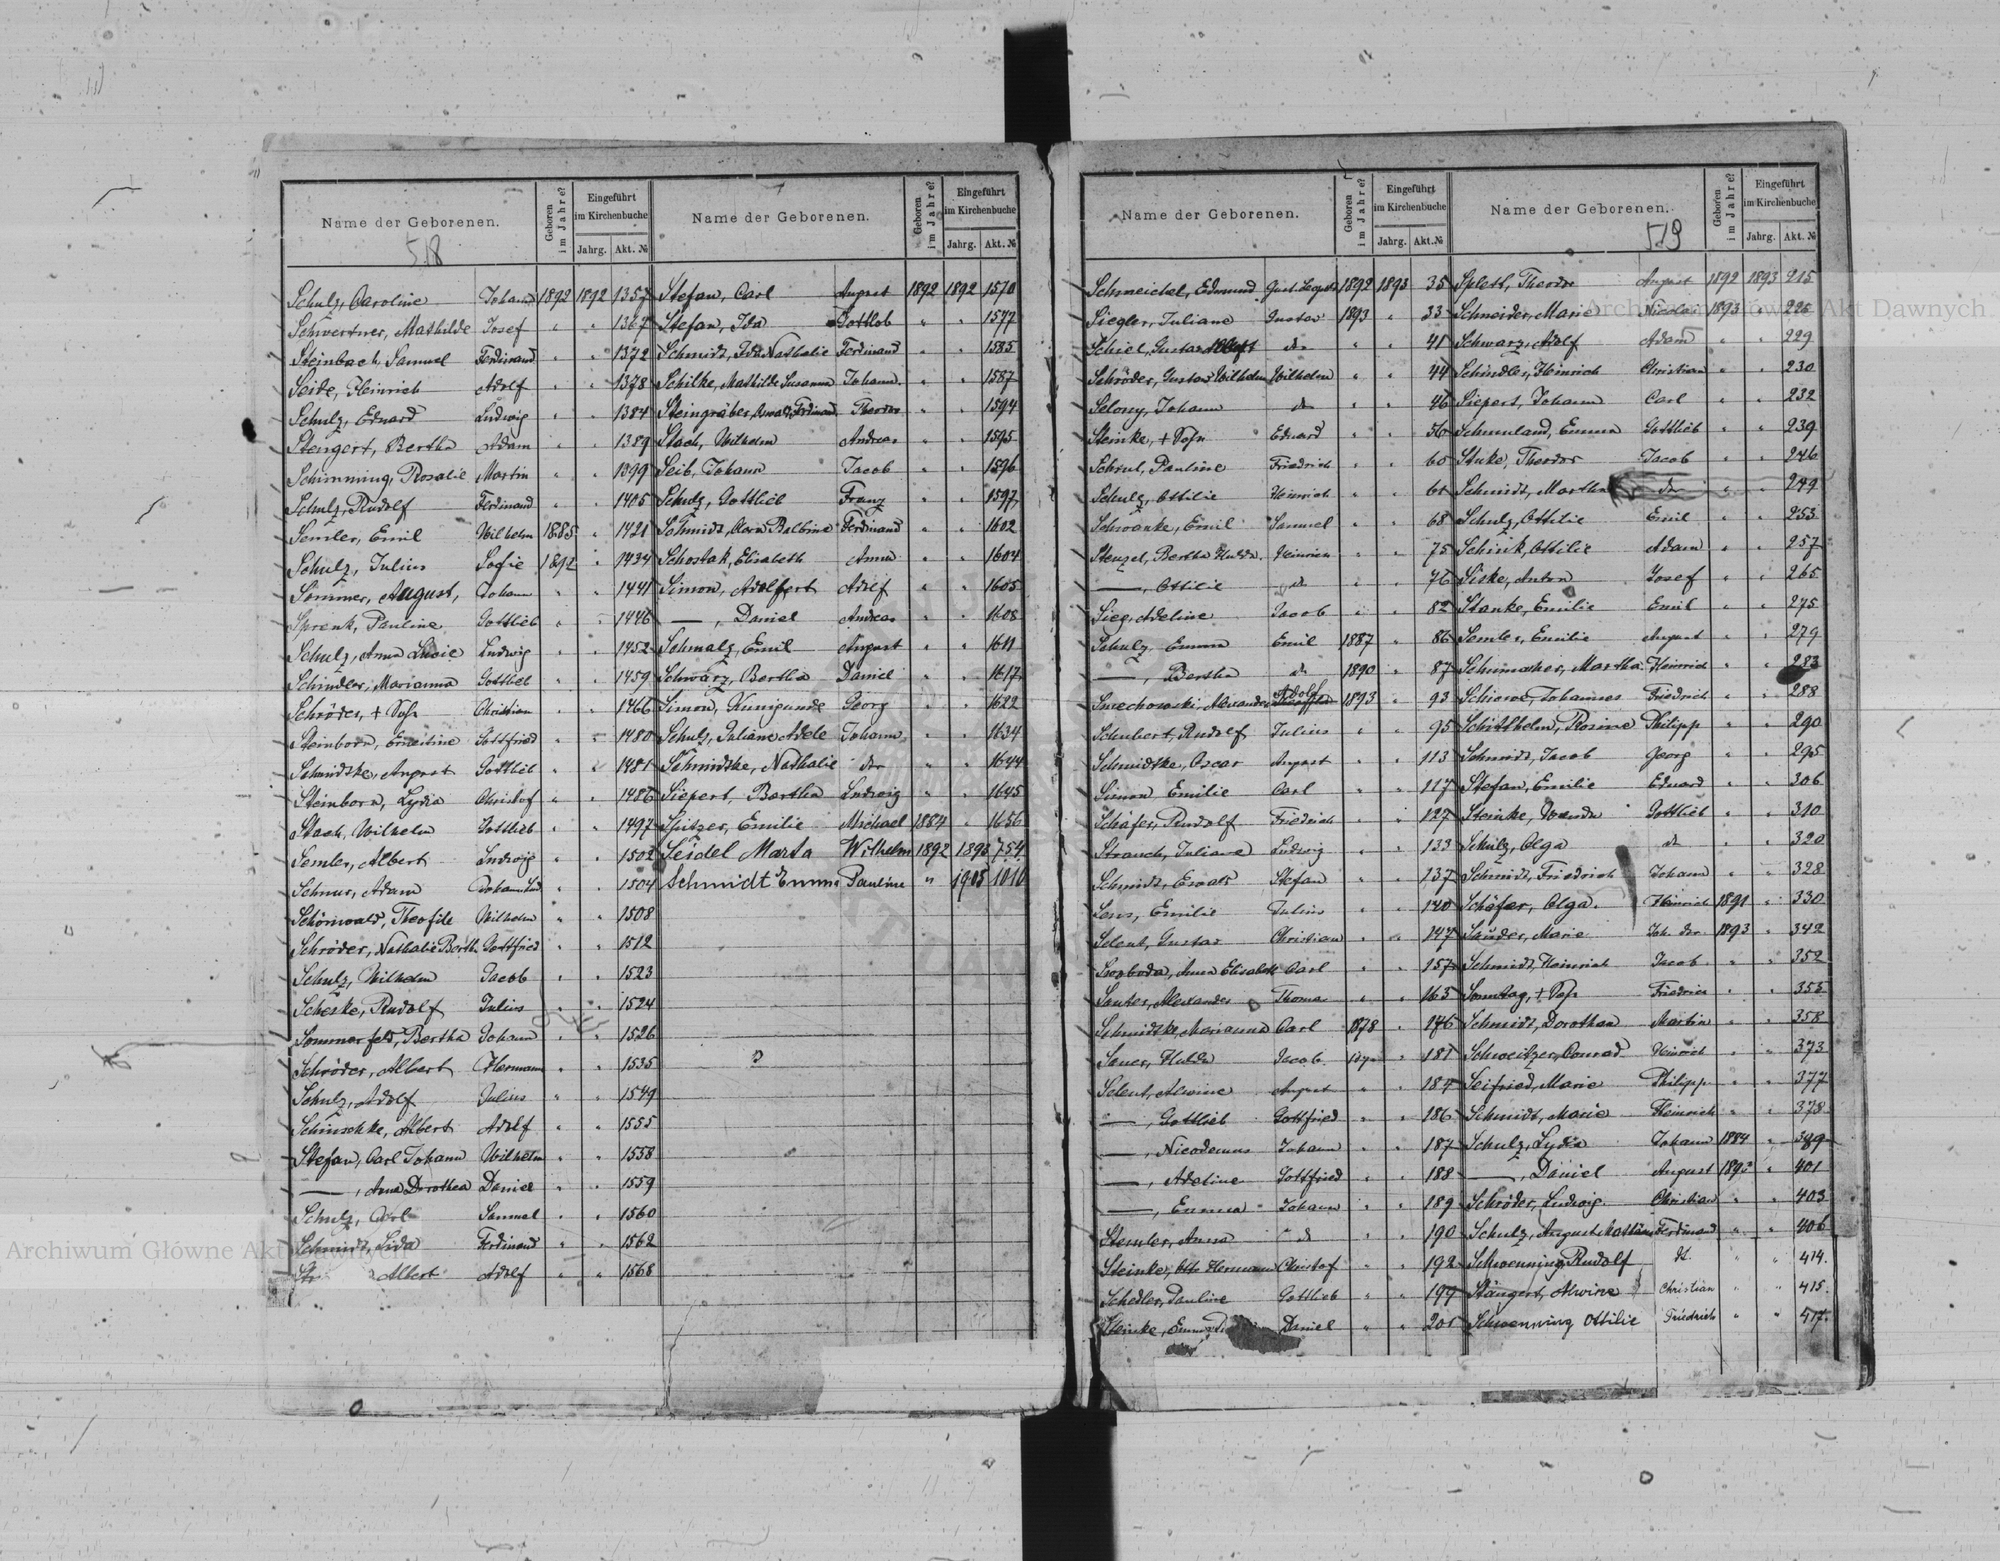 Name der Geborenen.
Geboren im Jahre?
Eingeführt im Kirchenbuche
Jahrg. Akt. №
518
Schulz, Caroline Johann 1892 1892 1357
Schwertner, Mathilde Josef " " 1367
Steinbach, Samuel Ferdinand " " 1372
Seide, Heinrich Adolf " " 1378
Schulz, Eduard Ludwig " " 1384
Stengert, Bertha Adam " " 1389
Schimming, Rosalie Martin " " 1399
Schulz, Rudolf Ferdinand " " 1405
Semler, Emil Wilhelm 1885 " 1421
Schulz, Julius Sofie 1892 " 1434
Sommer, August, Johann " " 1441
Sprenk, Pauline Gottlieb " " 1446
Schulz, Anna Lucie Ludwig " " 1452
Schindler, Marianna Gottlieb " " 1459
Schröder, + Sohn Christian " " 1466
Steinborn, Ernestine Gottfried " " 1480
Schmidtke, August Gottlieb " " 1481
Steinborn, Lydia Christof " " 1486
Stach, Wilhelm Gottlieb " " 1497
Semler, Albert Ludwig " " 1502
Schnur, Adam Johann " " 1504
Schönwald, Theofile Wilhelm " " 1508
Schröder, Nathalie Berth. Gottfried " " 1512
Schulz, Wilhelm Jacob " " 1523
Scheske, Rudolf Julius " " 1524
Sommerfeld, Bertha Johann " " 1526
Schröder, Albert Hermann " " 1535
Schulz, Adolf Julius " " 1549
Schinschke, Albert Adolf " " 1555
Stefan, Carl Johann Wilhelm " " 1558
—, Anna Dorothea Daniel " " 1559
Schulz, Carl Samuel " " 1560
Schmidt, Lida Ferdinand " " 1562
Albert Adolf " " 1568
Name der Geborenen.
Geboren im Jahre?
Eingeführt im Kirchenbuche
Jahrg. Akt. №
Stefan, Carl August 1892 1892 1570
Stefan, Ida Gottlob " " 1577
Schmidt, Ida Nathalie Ferdinand " " 1585
Schilke, Mathilde Susanna Johann " " 1587
Steingräber, Oswald Ferdinand Theodor " " 1594
Stach, Wilhelm Andreas " " 1595
Seib, Johann Jacob " " 1596
Schulz, Gottlieb Franz " " 1597
Schmidt, Clara Balbine Ferdinand " " 1602
Schostak, Elisabeth Anna " " 1604
Simon, Adolfert Adolf " " 1605
—, Daniel Andreas " " 1608
Schmalz, Emil August " " 1611
Schwarz, Bertha Daniel " " 1617
Simon, Kunigunde Georg " " 1622
Schulz, Juliane Adele Johann " " 1634
Schmidtke, Nathalie do " " 1644
Siepert, Bertha Ludwig " " 1645
Spitzer, Emilie Michael 1884 " 1656
Seidel Marta Wilhelm 1892 1893 754
Schmidt Emma Pauline " 1905 1010
Name der Geborenen.
Geboren im Jahre?
Eingeführt im Kirchenbuche
Jahrg. Akt. №
Schmeichel, Edmund 1892 1893 35
Siegler, Juliane Gustav 1893 " 33
Schiel, Gustav do " " 41
Schröder, Gustav Wilhelm Wilhelm " " 44
Selony, Johann do " " 46
Steinke, + Sohn Eduard " " 56
Schrul, Pauline Friedrich " " 60
Schulz, Ottilie Heinrich " " 61
Schwanke, Emil Samuel " " 68
Stenzel, Bertha Hulda Heinrich " " 75
—, Ottilie do " " 76
Sieg, Adeline Jacob " " 82
Schulz, Emma Emil 1887 " 86
—, Bertha do 1890 " 87
Smechowski, Alexander Adolf 1893 " 93
Schubert, Rudolf Julius " " 95
Schmidtke, Oscar August " " 113
Simon Emilie Carl " " 117
Schäfer, Rudolf Friedrich " " 127
Strauch, Juliane Ludwig " " 133
Schmidt, Ewald Stefan " " 137
Sens, Emilie Julius " " 140
Selent, Gustav Christian " " 147
Swoboda, Anna Elisabeth Carl " " 157
Sauter, Alexander Thomas " " 163
Schmidtke, Marianna Carl 1878 " 176
Sauer, Hulda Jacob " 181
Selent, Alwine August " " 184
—, Gottlieb Gottfried " " 186
—, Nicodemus Johann " " 187
—, Adeline Gottfried " " 188
—, Emma Johann " " 189
Stemler, Anna do " " 190
Steinke, Otto Hermann Christof " " 192
Schedler, Pauline Gottlieb " " 197
Steinke, Daniel " " 201
Name der Geborenen.
Geboren im Jahre?
Eingeführt im Kirchenbuche
Jahrg. Akt. №
519
Splett, Theodor August 1892 1893 215
Schneider, Marie Nicolai 1893 " 225
Schwarz, Adolf Adam " " 229
Schindler, Heinrich Christian " " 230
Siepert, Johann Carl " " 232
Schmuland, Emma Gottlieb " " 239
Stuke, Theodor Jacob " " 246
Schmidt, Martha do " " 249
Schulz, Ottilie Emil " " 253
Schink, Ottilie Adam " " 257
Siske, Anton Josef " " 265
Stanke, Emilie Emil " " 275
Semler, Emilie August " " 279
Schumacher, Martha Heinrich " " 283
Schiewe, Johannes Friedrich " " 288
Schitthelm, Rosine Philipp " " 290
Schmidt, Jacob Georg " " 295
Stefan, Emilie Eduard " " 306
Steinke, Wanda Gottlieb " " 310
Schulz, Olga do " " 320
Schmidt, Friedrich Johann " " 328
Schäfer, Olga. Heinrich 1891 " 330
Sauder, Marie 1893 " 342
Schmidt, Heinrich Jacob " " 352
Sonntag, + Sohn Friedrich " " 353
Schmidt, Dorothea Martin " " 358
Schweitzer, Conrad Heinrich " " 373
Seifried, Marie Philipp " " 377
Schmidt, Marie Heinrich " " 378
Schulz, Lydia Johann 1884 " 389
—, Daniel August 1893 " 401
Schröder, Ludwig Christian " " 403
Schulz, August Ferdinand " " 406
Schoenning, Rudolf " " 414.
Stängert, Alwine Christian " " 415.
Schoenning Ottilie Friedrich " " 417.
Archiwum Główne Akt Dawnych
Archiwum Główne Akt Dawnych